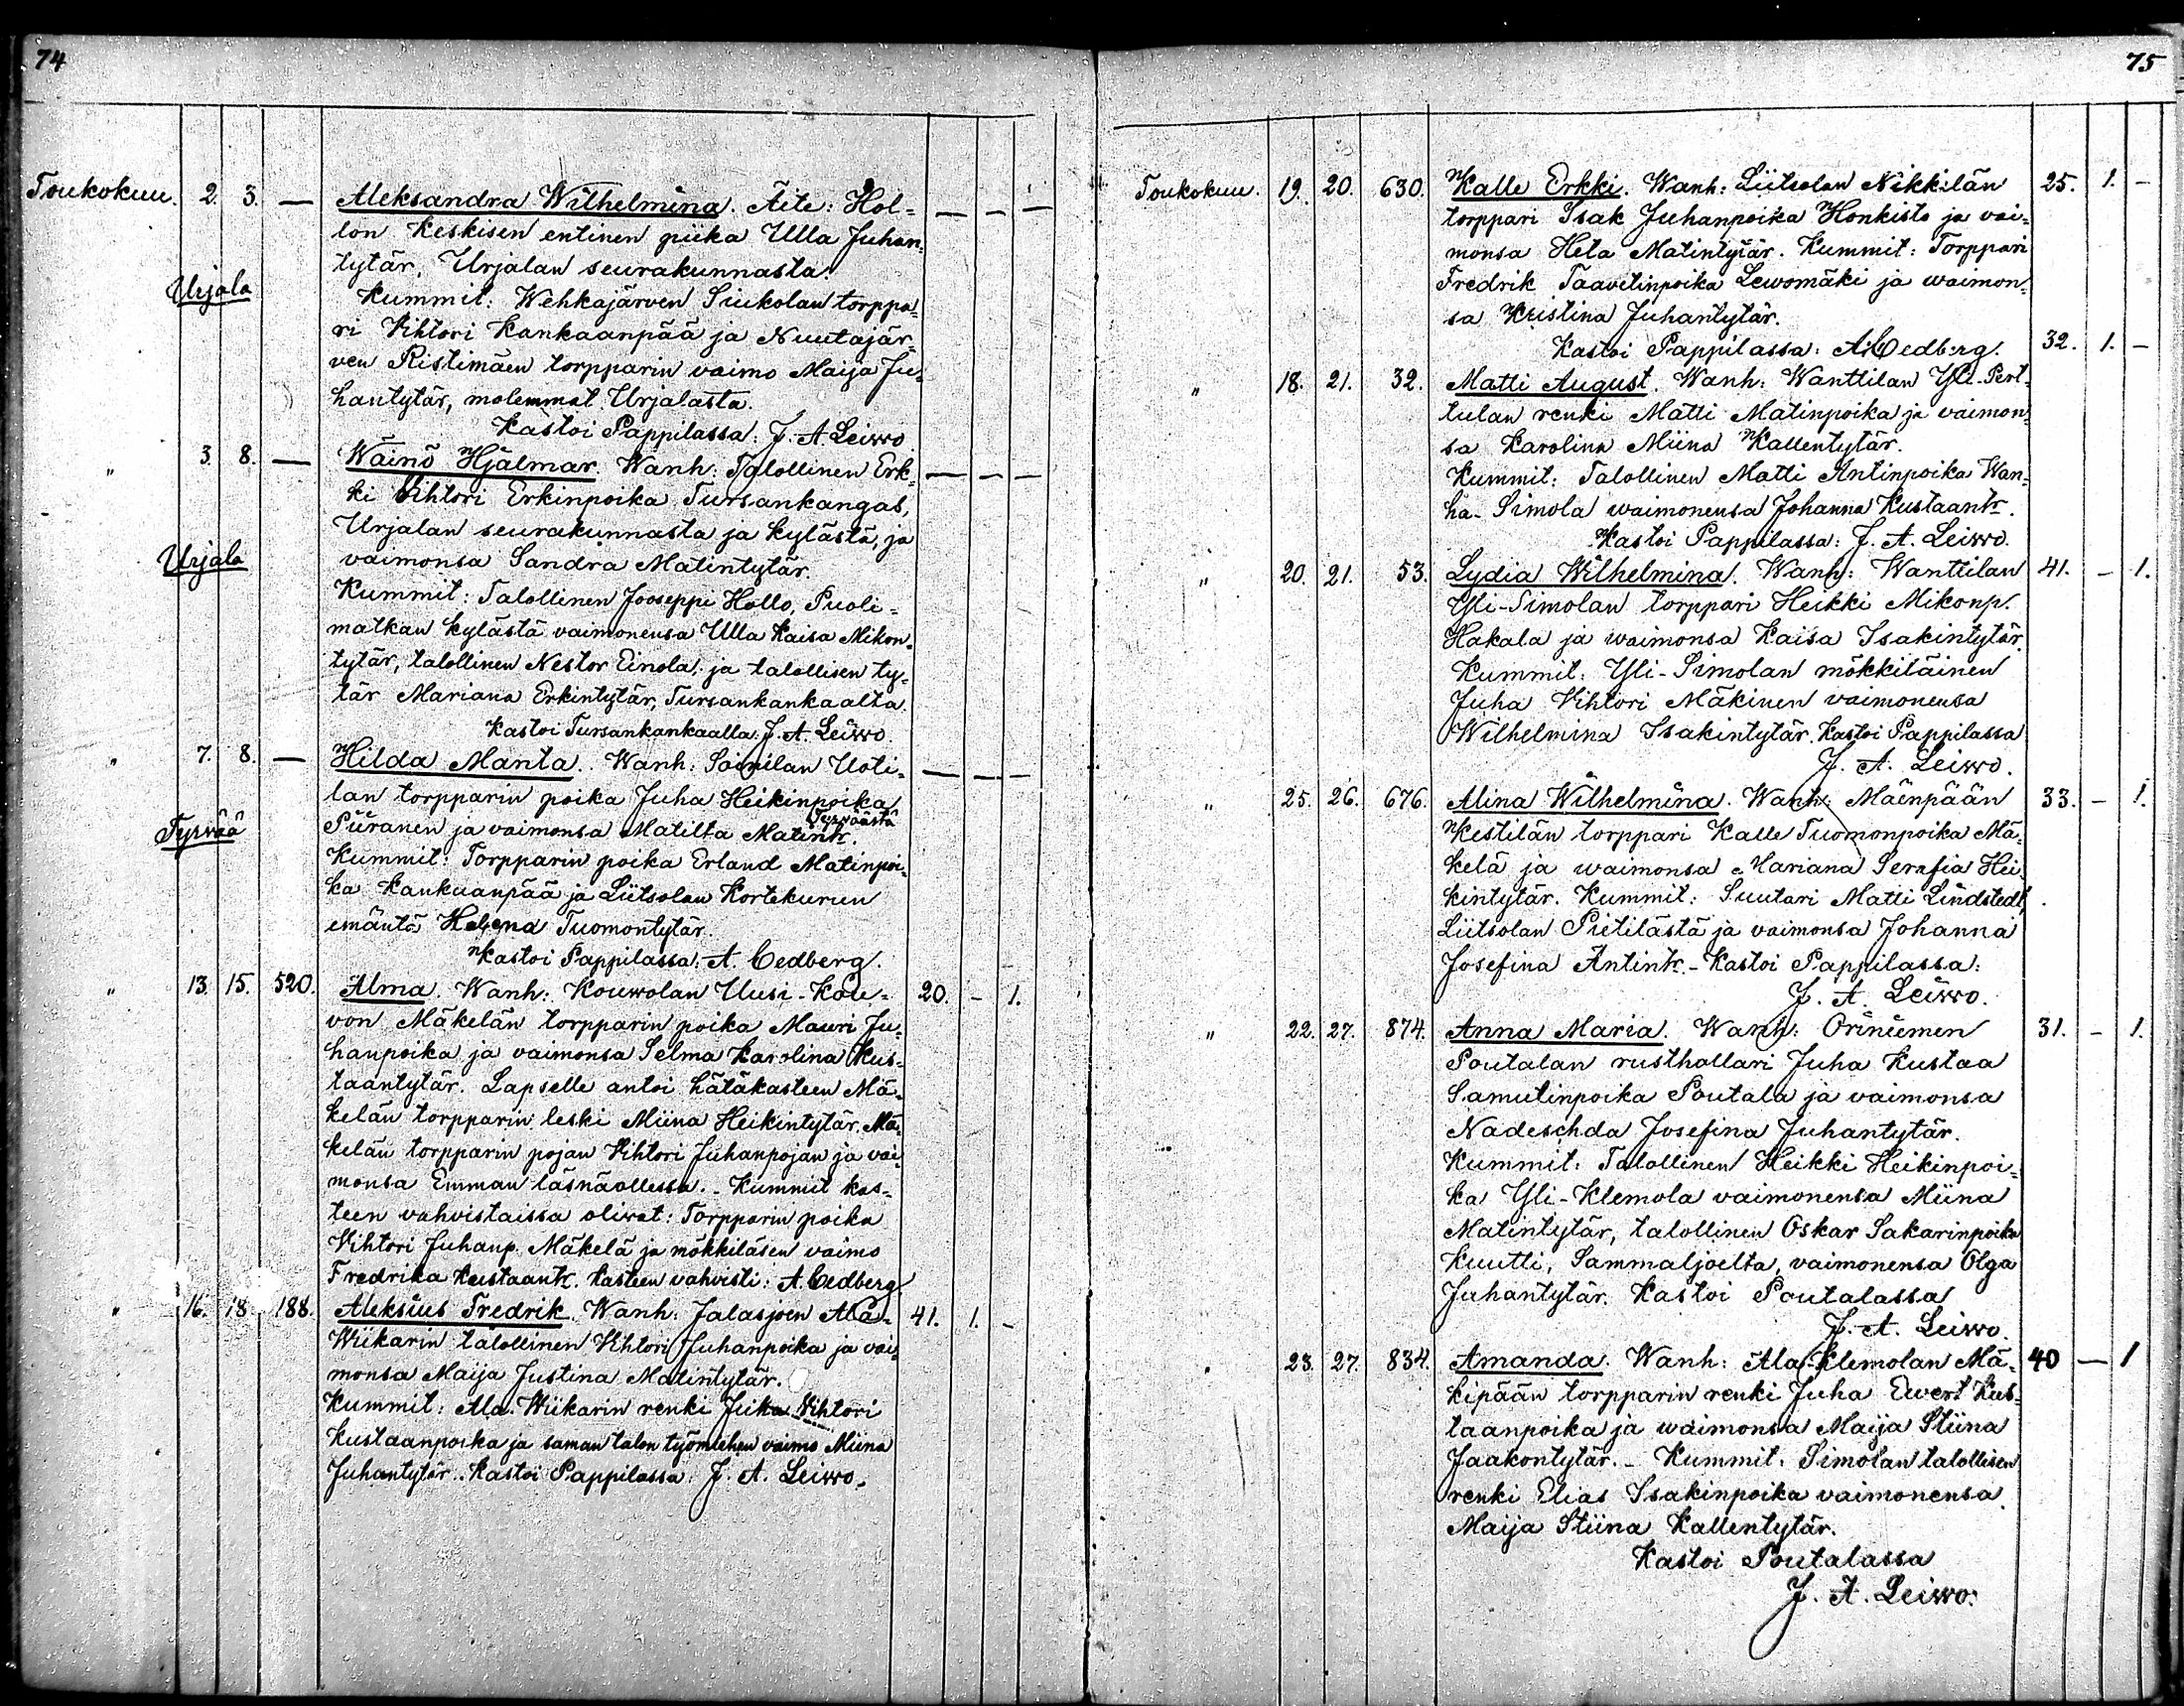 74
Toukokuu. 2. 3. — Aleksandra Wilhelmina. Äite: Hol= — — —
lon Keskisen entinen piika Ulla Juhan=
tytär, Urjalan seurakunnasta.
Urjala
Kummit: Wehkajärven Siukolan torppa=
ri Vihtori Kankaanpää ja Nuutajär=
ven Ristimäen torpparin vaimo Maija Ju=
hantytär, molemmat Urjalasta.
Kastoi Pappilassa: J. A. Leivvo
" 3. 8. — Wäinö Hjalmar. Wanh: Talollinen Erk= — — —
ki Vihtori Erkinpoika Tursankangas,
Urjalan seurakunnasta ja kylästä, ja
Urjala
vaimonsa Sandra Matintytär.
Kummit: Talollinen Jooseppi Hollo, Puoli=
matkan kylästä vaimonensa Ulla Kaisa Mikon=
tytär, talollinen Nestor Einola, ja talollisen ty=
tär Mariana Erkintytär, Tursankankaalta.
Kastoi Tursankankaalla: J. A. Leivvo.
" 7. 8. — Hilda Manta. Wanh: Soinilan Uoti= — — —
lan torpparin poika Juha Heikinpoika
Tyrväästä
Tyrvää
Piiranen ja vaimonsa Matilta Matintr.
Kummit: Torpparin poika Erland Matinpoi=
ka Kankaanpää ja Liitsolan Kortekurun
emäntä Helena Tuomontytär.
Kastoi Pappilassa: A. Cedberg.
" 13. 15. 520. Alma. Wanh: Kouwolan Uusi-Kou= 20. - 1.
von Mäkelän torpparin poika Mauri Ju=
hanpoika ja vaimonsa Selma Karolina Kus=
taantytär. Lapselle antoi hätäkasteen Mä=
kelän torpparin leski Miina Heikintytär, Mä=
kelän torpparin pojan Vihtori Juhanpojan ja vai=
monsa Emman läsnäollessa. - Kummit kas=
teen vahvistaissa olivat: Torpparin poika
Vihtori Juhanp. Mäkelä ja mökkiläisen vaimo
Fredrika Kustaantr. Kasteen vahvisti: A. Cedberg.
" 16. 18. 188. Aleksius Fredrik. Wanh: Jalasjoen Ala- 41. 1. -
Wiikarin talollinen Vihtori Juhanpoika ja vai=
monsa Maija Justina Matintytär.
Kummit: Ala-Wiikarin renki Juha Vihtori
Kustaanpoika ja saman talon työmiehen vaimo Miina
Juhantytär. Kastoi Pappilassa: J. A. Leivvo.
75
Toukokuu. 19. 20. 630. Kalle Erkki. Wanh: Liitsolan Nikkilän 25. 1. -
torppari Isak Juhanpoika Honkisto ja vai=
monsa Heta Matintytär. Kummit: Torppari
Fredrik Taavetinpoika Lewomäki ja waimon=
sa Kristina Juhantytär.
Kastoi Pappilassa: A. Cedberg.
" 18. 21. 32. Matti August. Wanh: Wanttilan Yli-Pert= 32. 1. -
tulan renki Matti Matinpoika ja vaimon=
sa Karolina Miina Kallentytär.
Kummit: Talollinen Matti Antinpoika Wan=
ha-Simola waimonensa Johanna Kustaantr.
Kastoi Pappilassa: J. A. Leivvo.
" 20. 21. 53. Lydia Wilhelmina. Wanh: Wanttilan 41. - 1.
Yli-Simolan torppari Heikki Mikonp.
Hakala ja waimonsa Kaisa Isakintytär.
Kummit: Yli-Simolan mökkiläinen
Juha Vihtori Mäkinen vaimonensa
Wilhelmina Isakintytär. Kastoi Pappilassa
J. A. Leivvo.
" 25. 26. 676. Alina Wilhelmina. Wanh: Mäenpään 33. - 1.
Kestilän torppari Kalle Tuomonpoika Mä=
kelä ja waimonsa Mariana Serafia Hei=
kintytär. Kummit: Suutari Matti Lindstedt,
Liitsolan Pietilästä ja vaimonsa Johanna
Josefina Antintr. - Kastoi Pappilassa:
J. A. Leivvo.
" 22. 27. 874. Anna Maria. Wanh: Oriniemen 31. - 1.
Poutalan rusthollari Juha Kustaa
Samulinpoika Poutala ja vaimonsa
Nadeschda Josefina Juhantytär.
Kummit: Talollinen Heikki Heikinpoi=
ka Yli-Klemola vaimonensa Miina
Matintytär, talollinen Oskar Sakarinpoika
Kuutti, Sammaljoelta, vaimonensa Olga
Juhantytär. Kastoi Poutalassa
J. A. Leivvo.
" 23. 27. 834. Amanda. Wanh: Ala-Klemolan Mä= 40 — 1
kipään torpparin renki Juha Evert Kus=
taanpoika ja waimonsa Maija Stiina
Jaakontytär. - Kummit: Simolan talollisen
renki Elias Isakinpoika vaimonensa
Maija Stiina Kallentytär.
Kastoi Poutalassa
J. A. Leivvo.